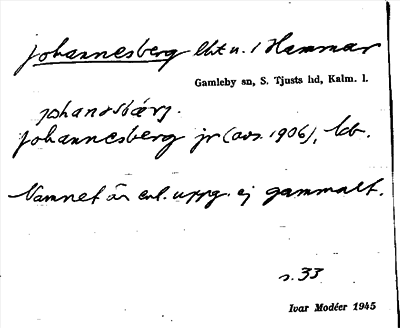 Johannesberg lht u. 1 Hammar
Gamleby sn, S. Tjusts hd, Kalm. l.
johansbärj.
Johannesberg jr (avs. 1906), Jdb.
Namnet är enl. uppg. ej gammalt.
s. 33
Ivar Modéer 1945